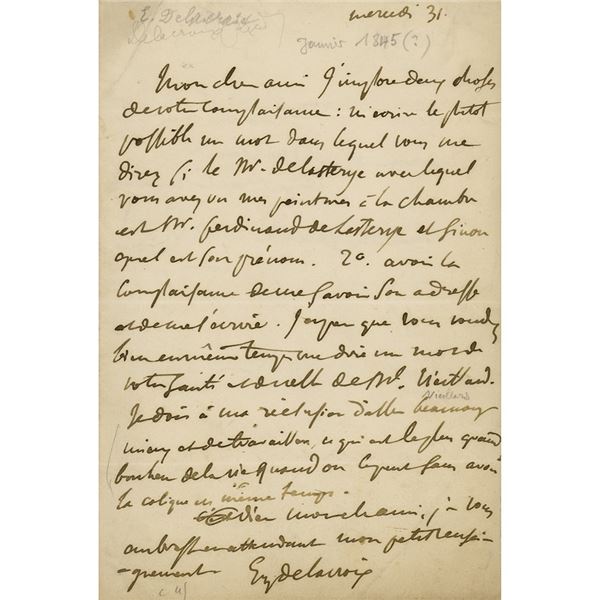 E. Delacroix
mercredi 31.
Janvier 1845(?)
Mon cher ami J'implore deux choses
de votre complaisance : m'ecrire le plutot
possible un mot dans lequel vous me
direz si le Mr. delasteyrie avec lequel
vous avez vu mes peintures à la chambre
est Mr. ferdinand de Lasteyrie et sinon
quel est son prénom. 2o. avoir la
complaisance de me savoir son adresse
et de me l'écrire. J'espere que vous voudrez
bien en même temps me dire un mot de
votre santé et de celle de Mr. Vieillard.
Vieillard
Je dois à ma réclusion d'aller beaucoup
mieux et de travailler, ce qui est le plus grand
bonheur de la vie quand on le peut sans avoir
la colique en même temps.
adieu mon cher ami, je vous
embrasse en attendant mon petit rensei-
-gnement Eug Delacroix